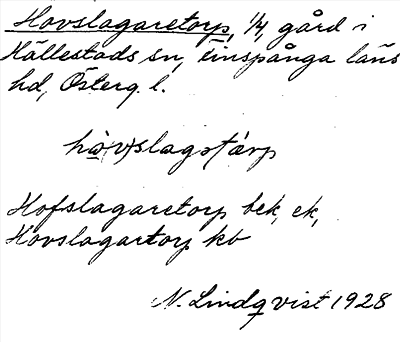 Hovslagaretorp, 1/4, gård i
Hällestads sn, Finspånga läns
hd, Österg. l.
hå̀(v)slagstárp
Hofslagaretorp bek, ek,
Hovslagartorp kb
N. Lindqvist 1928